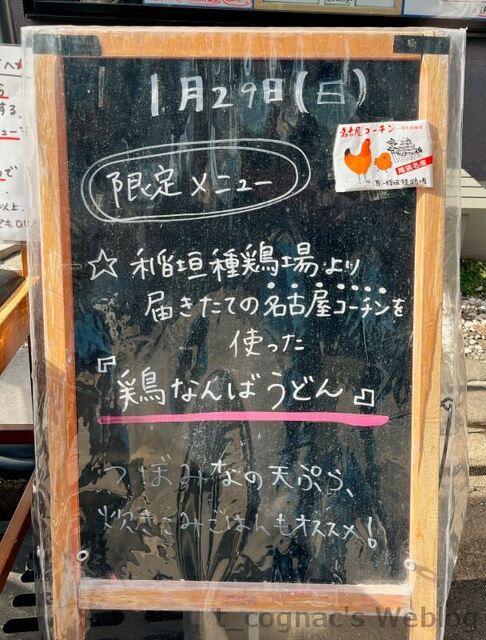 1月29日(日)
名古屋コーチン
尾張名産
限定メニュー
☆稲垣種鶏場より
届きたての名古屋コーチンを
使った
『鶏なんばうどん』
つぼみなの天ぷら、
炊きこみごはんもオススメ!
t_cognac's Weblog